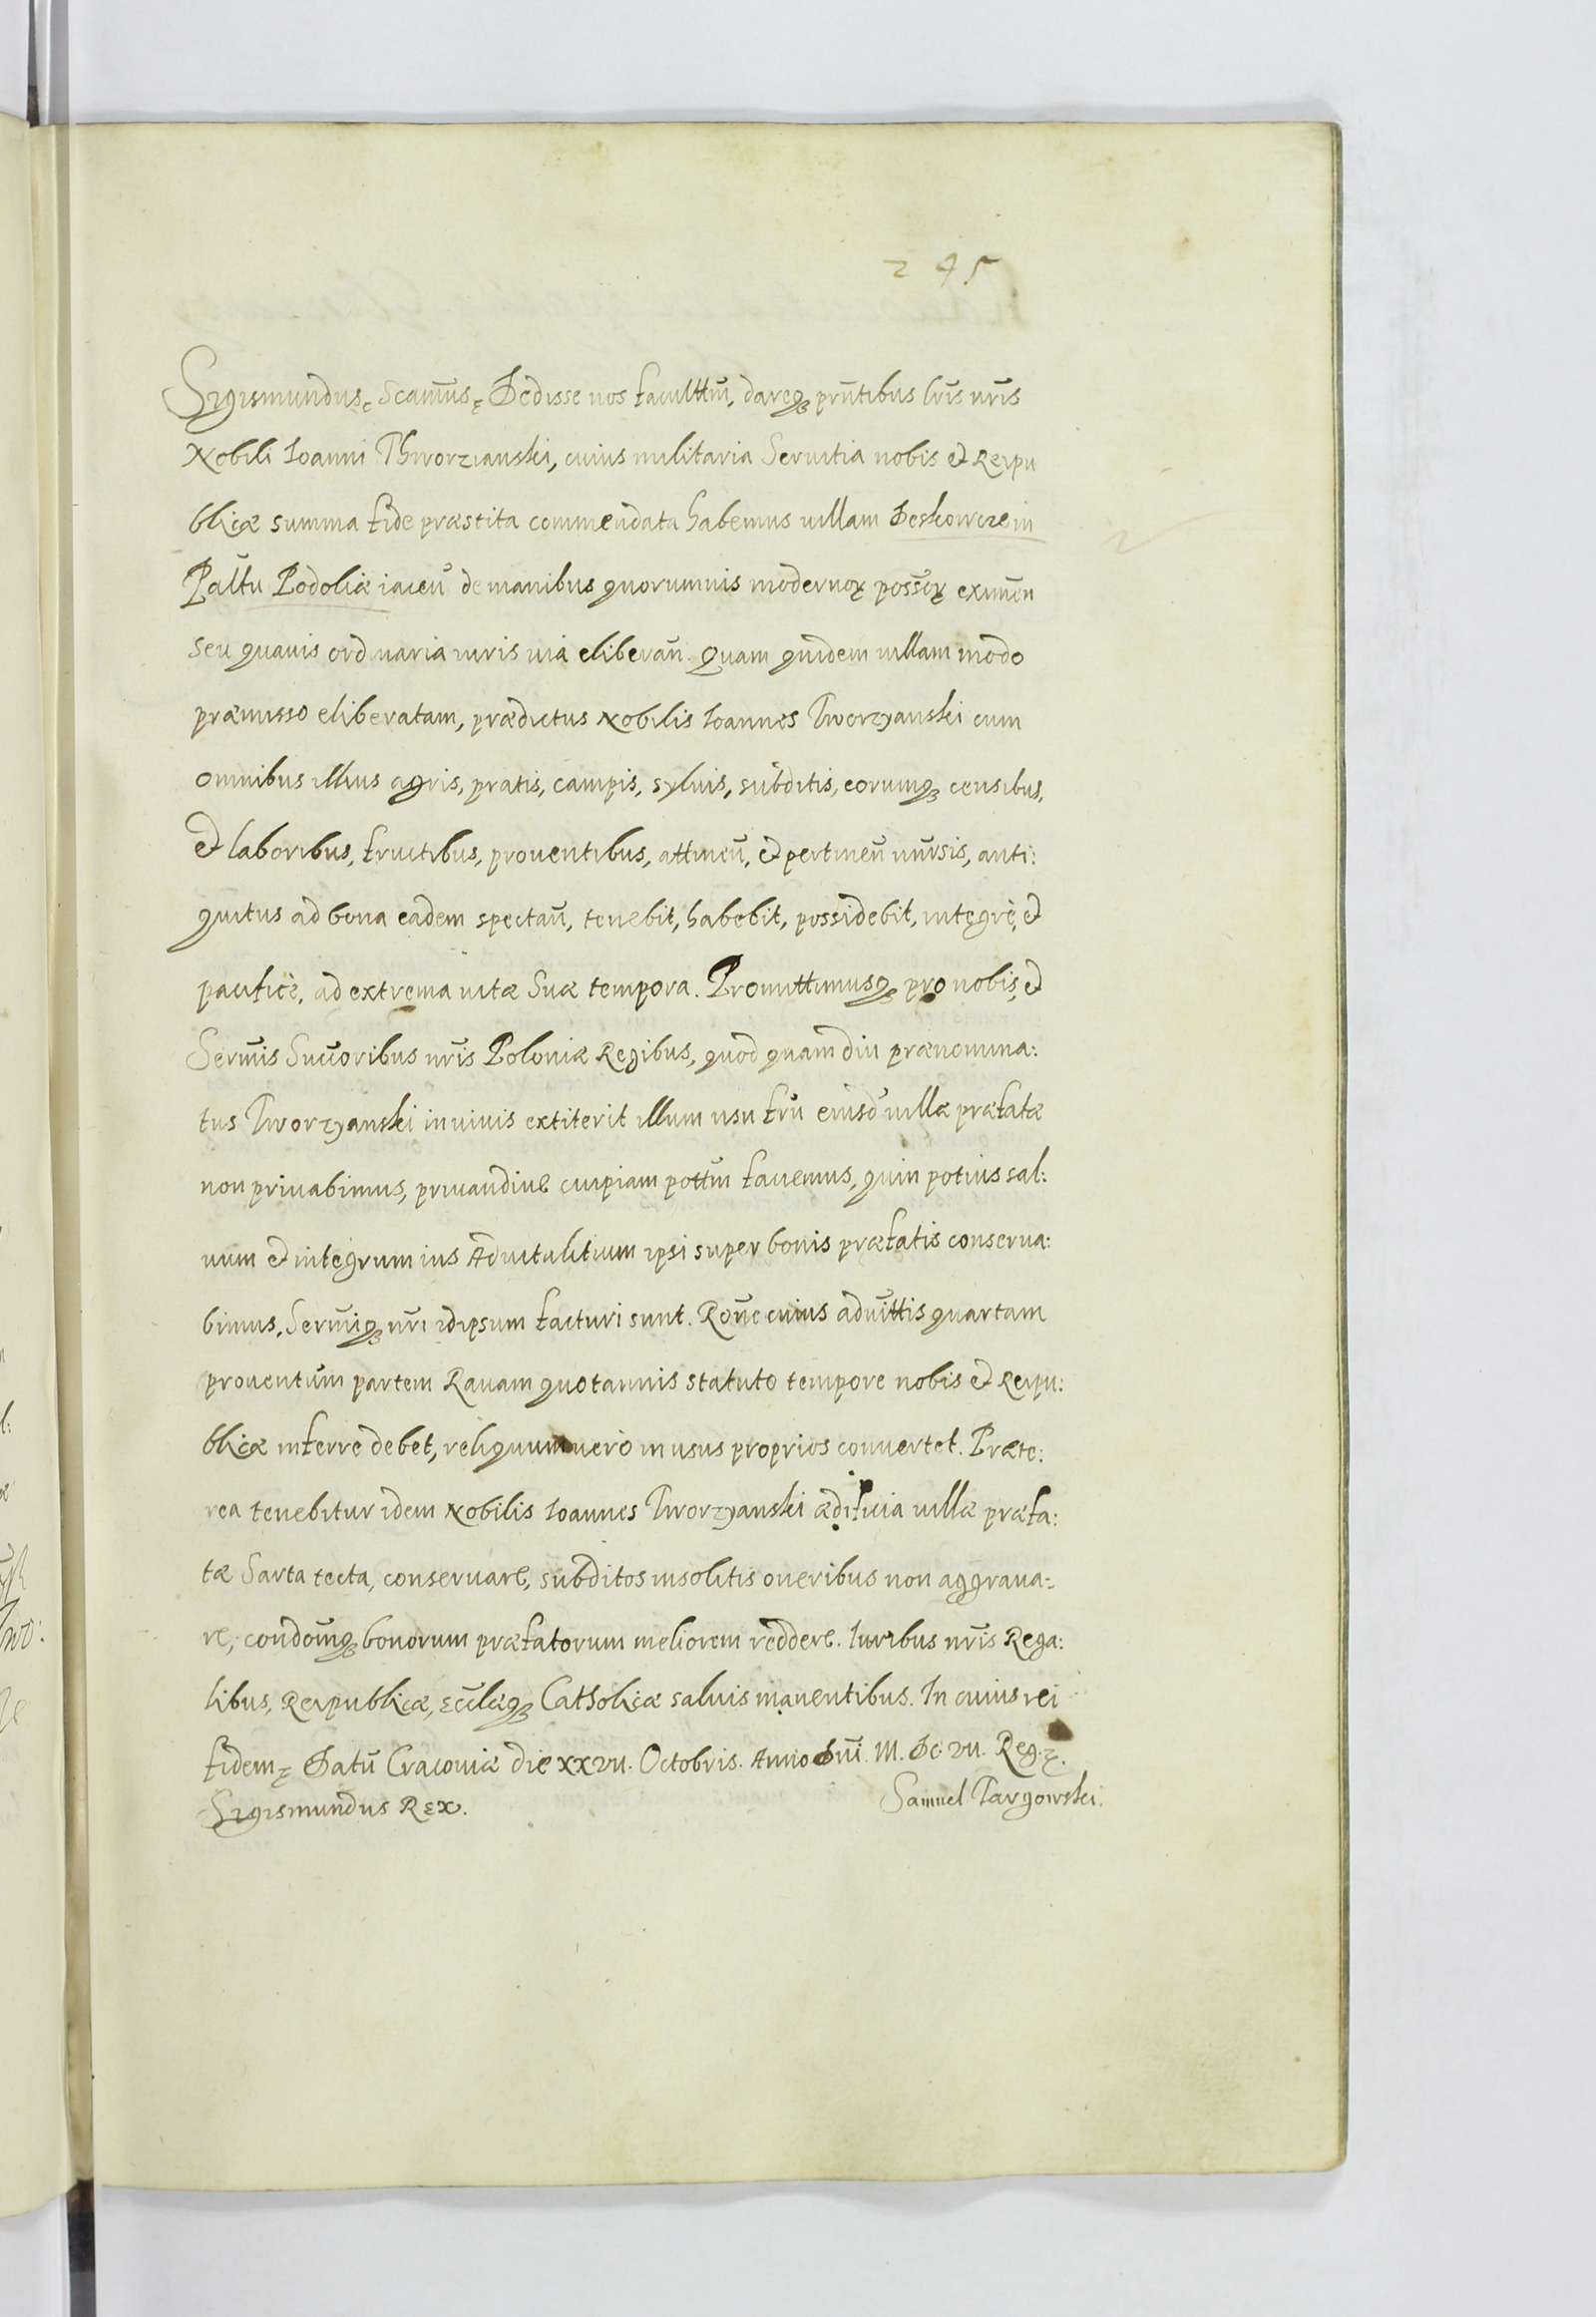 245
Sigismundus ę Scam̃us ę Dedisse nos faculttẽm, dareqȝ prñtibus lr̃is nr̃is
Nobili Ioanni Thworzianski, cuius militaria Seruitia nobis et Reipu
blicæ summa fide præstita commendata habemus uillam Deskowcze in
Palt̃u Podoliæ iaceñ de manibus quorumuis modernoꝝ possoꝝ̃ eximeñ
seu quauis ordinaria iuris uia eliberañ. Quam quidem uillam modo
præmisso eliberatam, prædictus Nobilis Ioannes Tworzyanski cum
omnibus illius agris, pratis, campis, syluis, subditis, eorumqȝ censibus,
et laboribus, fructibus, prouentibus, attineñ, et pertineñ uñrsis, anti:
quitus ad bona eadem spectañ, tenebit, habebit, possidebit, integrè, et
pacificè, ad extrema uitæ Suæ tempora. Promittimusqȝ pro nobis, et
Serm̃is Succ̃oribus nr̃is Poloniæ Regibus, quod quam diu prænomina:
tus Tworzyanski in uiuis extiterit illum usu frũ eiusd̃ uillæ præfatæ
non priuabimus, priuandiue cuipiam pottẽm faciemus, quin potius sal:
uum et integrum ius Aduitalitium ipsi super bonis præfatis conserua:
bimus, Serm̃iqȝ nr̃i idipsum facturi sunt. Rõne cuius aduittis quartam
prouentũm partem Rauam quotannis statuto tempore nobis et Reipu:
blicæ inferre debet, reliquum uerò in usus proprios conuertet. Præte:
rea tenebitur idem Nobilis Ioannes Tworzyanski ædificia uillæ præfa:
tæ Sarta tecta, conseruare, subditos insolitis oneribus non aggraua:
re, condoñmqȝ bonorum præfatorum meliorem reddere. Iuribus nr̃is Rega:
libus, Reipublicæ, Eccl̃æqȝ Catholicæ saluis manentibus. In cuius rei
fidem ę Datũ Cracouiæ die XXVII. Octobris. Anno Dñi M. DC. VII. Reg. ę.
Sigismundus Rex.
Samuel Targowski.